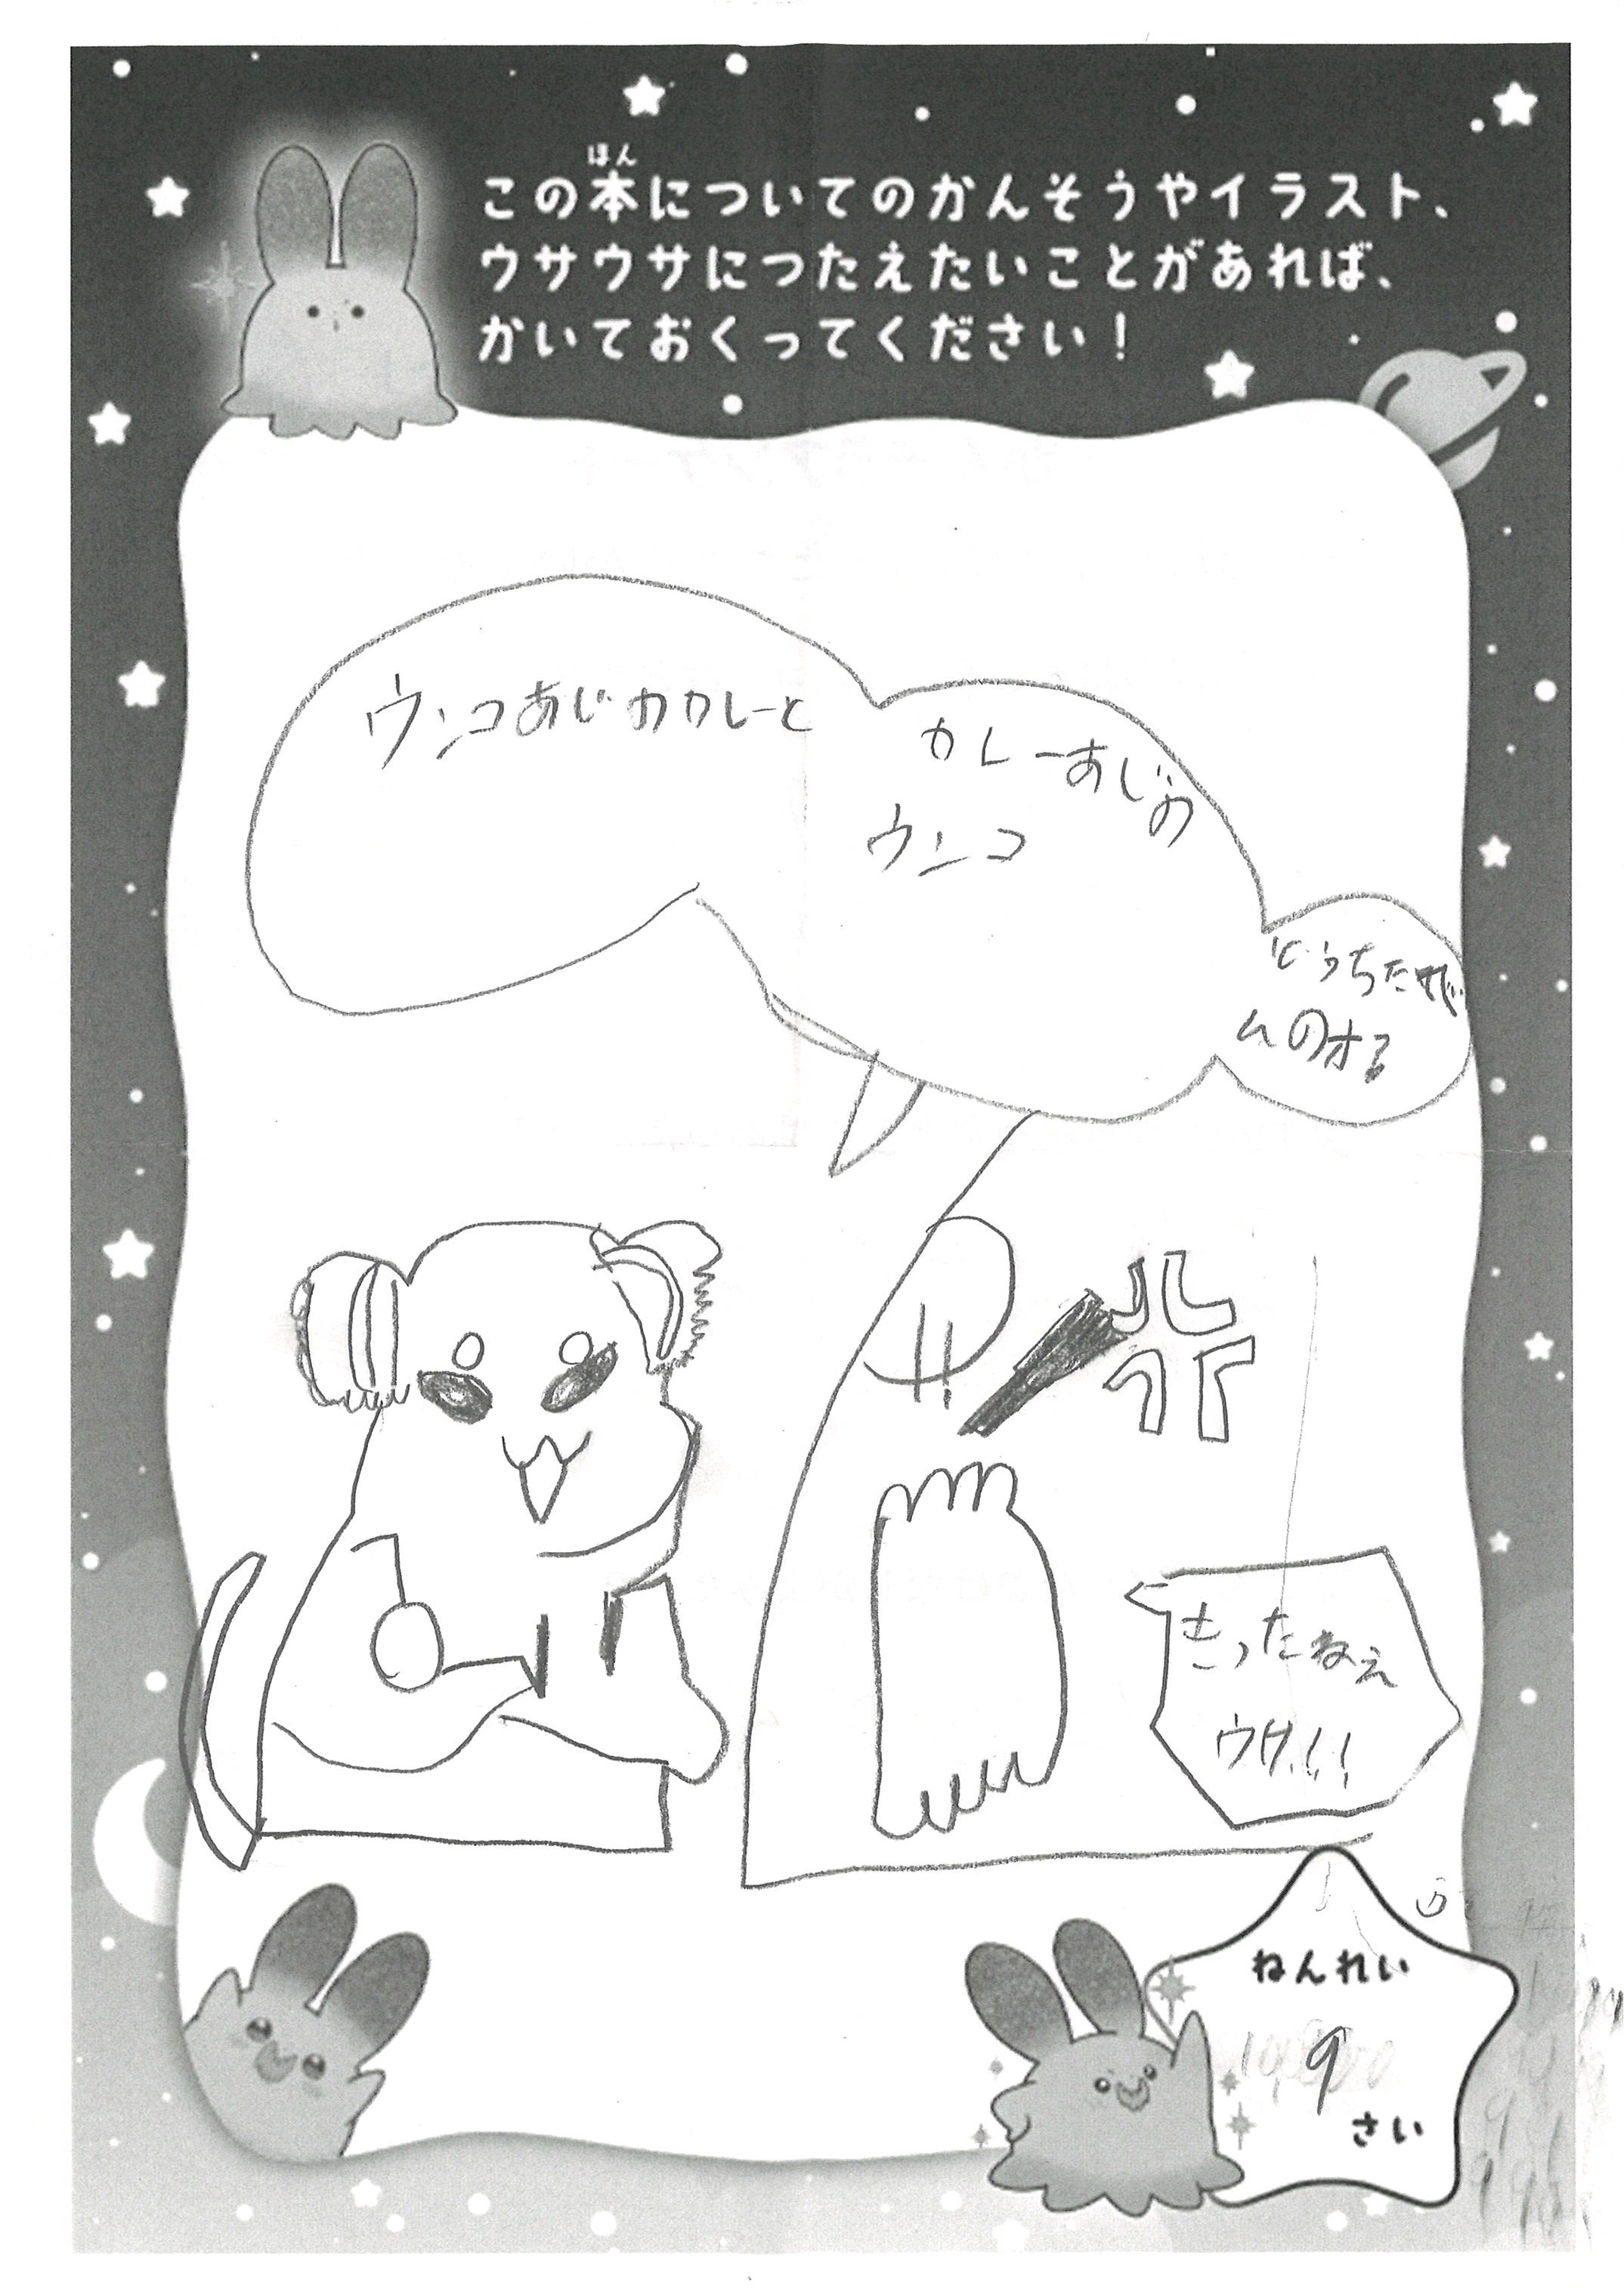 ほん
この本についてのかんそうやイラスト、
ウサウサにつたえたいことがあれば、
かいておくってください！
ウンコあじカカレーと
カレーあじの
ウンコ
どうちたが
きったねえ
ウサ!!
ねんれい
9
さい